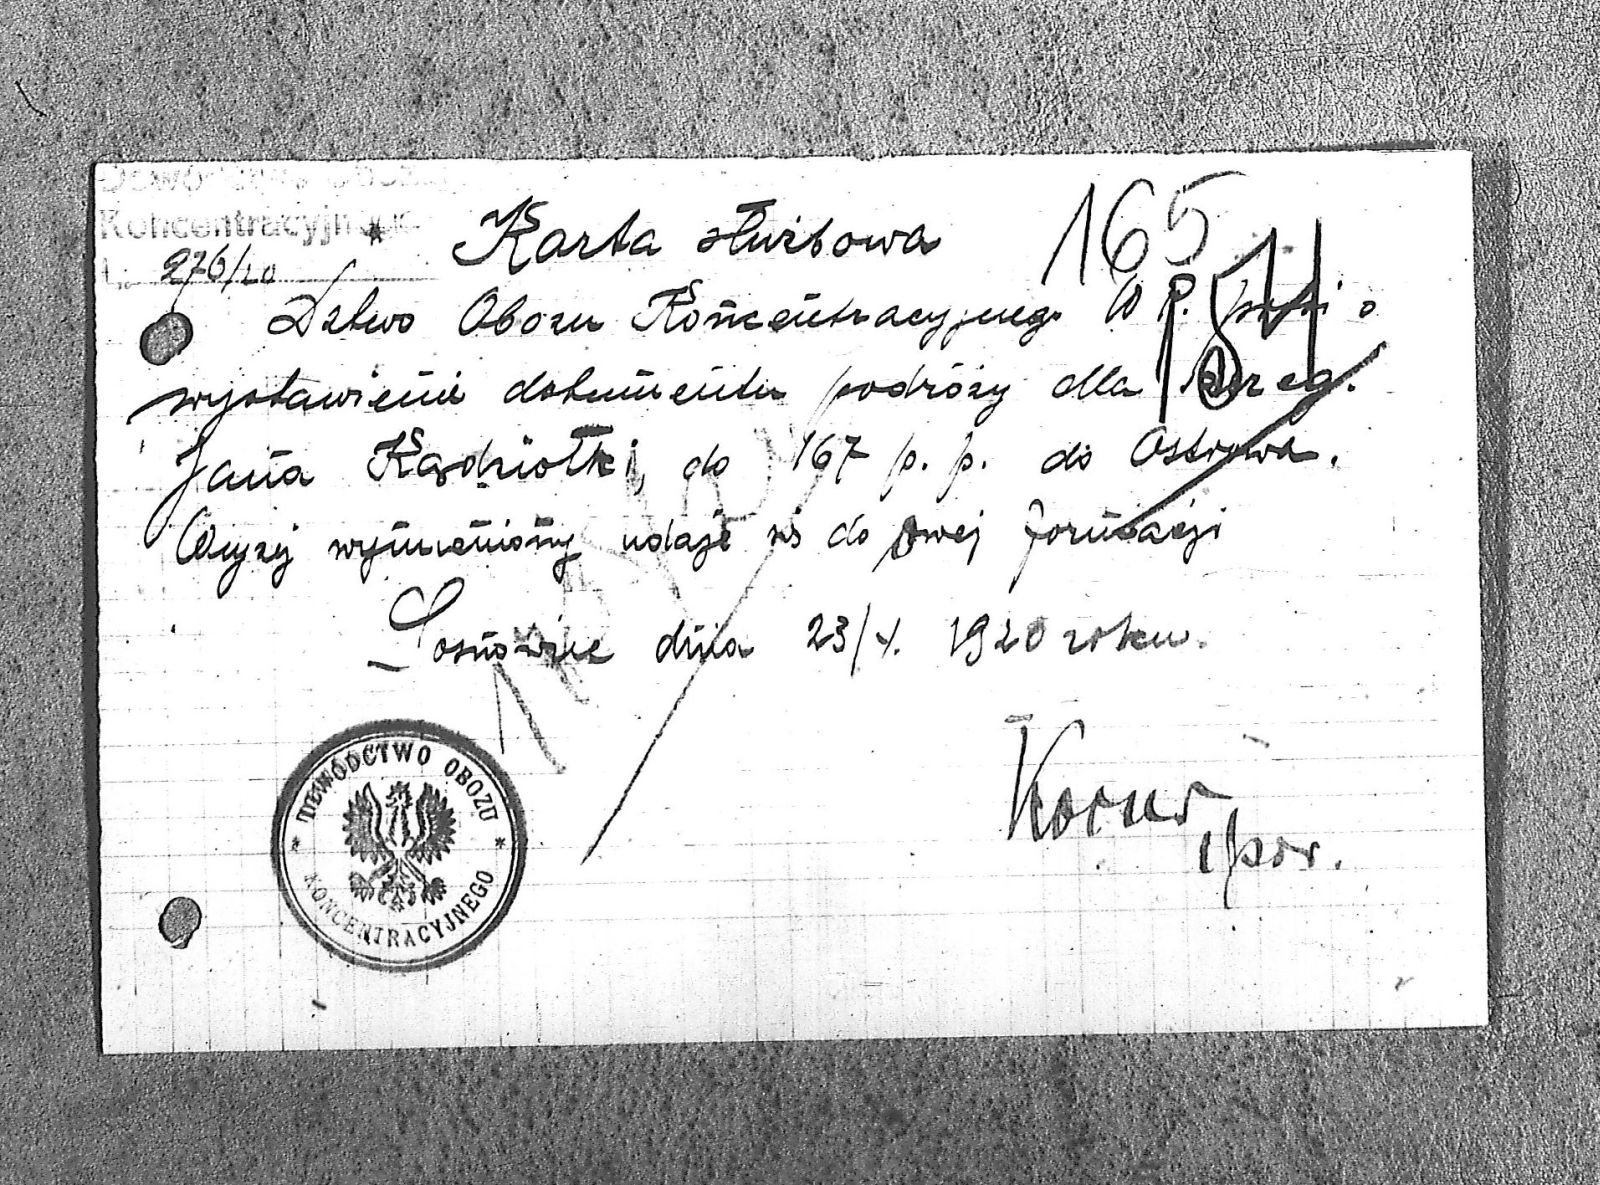 Koncentracyjnego
L. 276/20
Karta służbowa
165
Dztwo Obozu Koncentracyjnego W P. prosi o
wystawienie dokumentu podróży dla szereg.
Jana Kądziołki, do 167 p. p. do Ostrowa.
Wyżej wymieniony udaje się do swej formacji
Sosnowiec dnia 23/V. 1920 roku.
ppor.
DOWÓDCTWO OBOZU
KONCENTRACYJNEGO